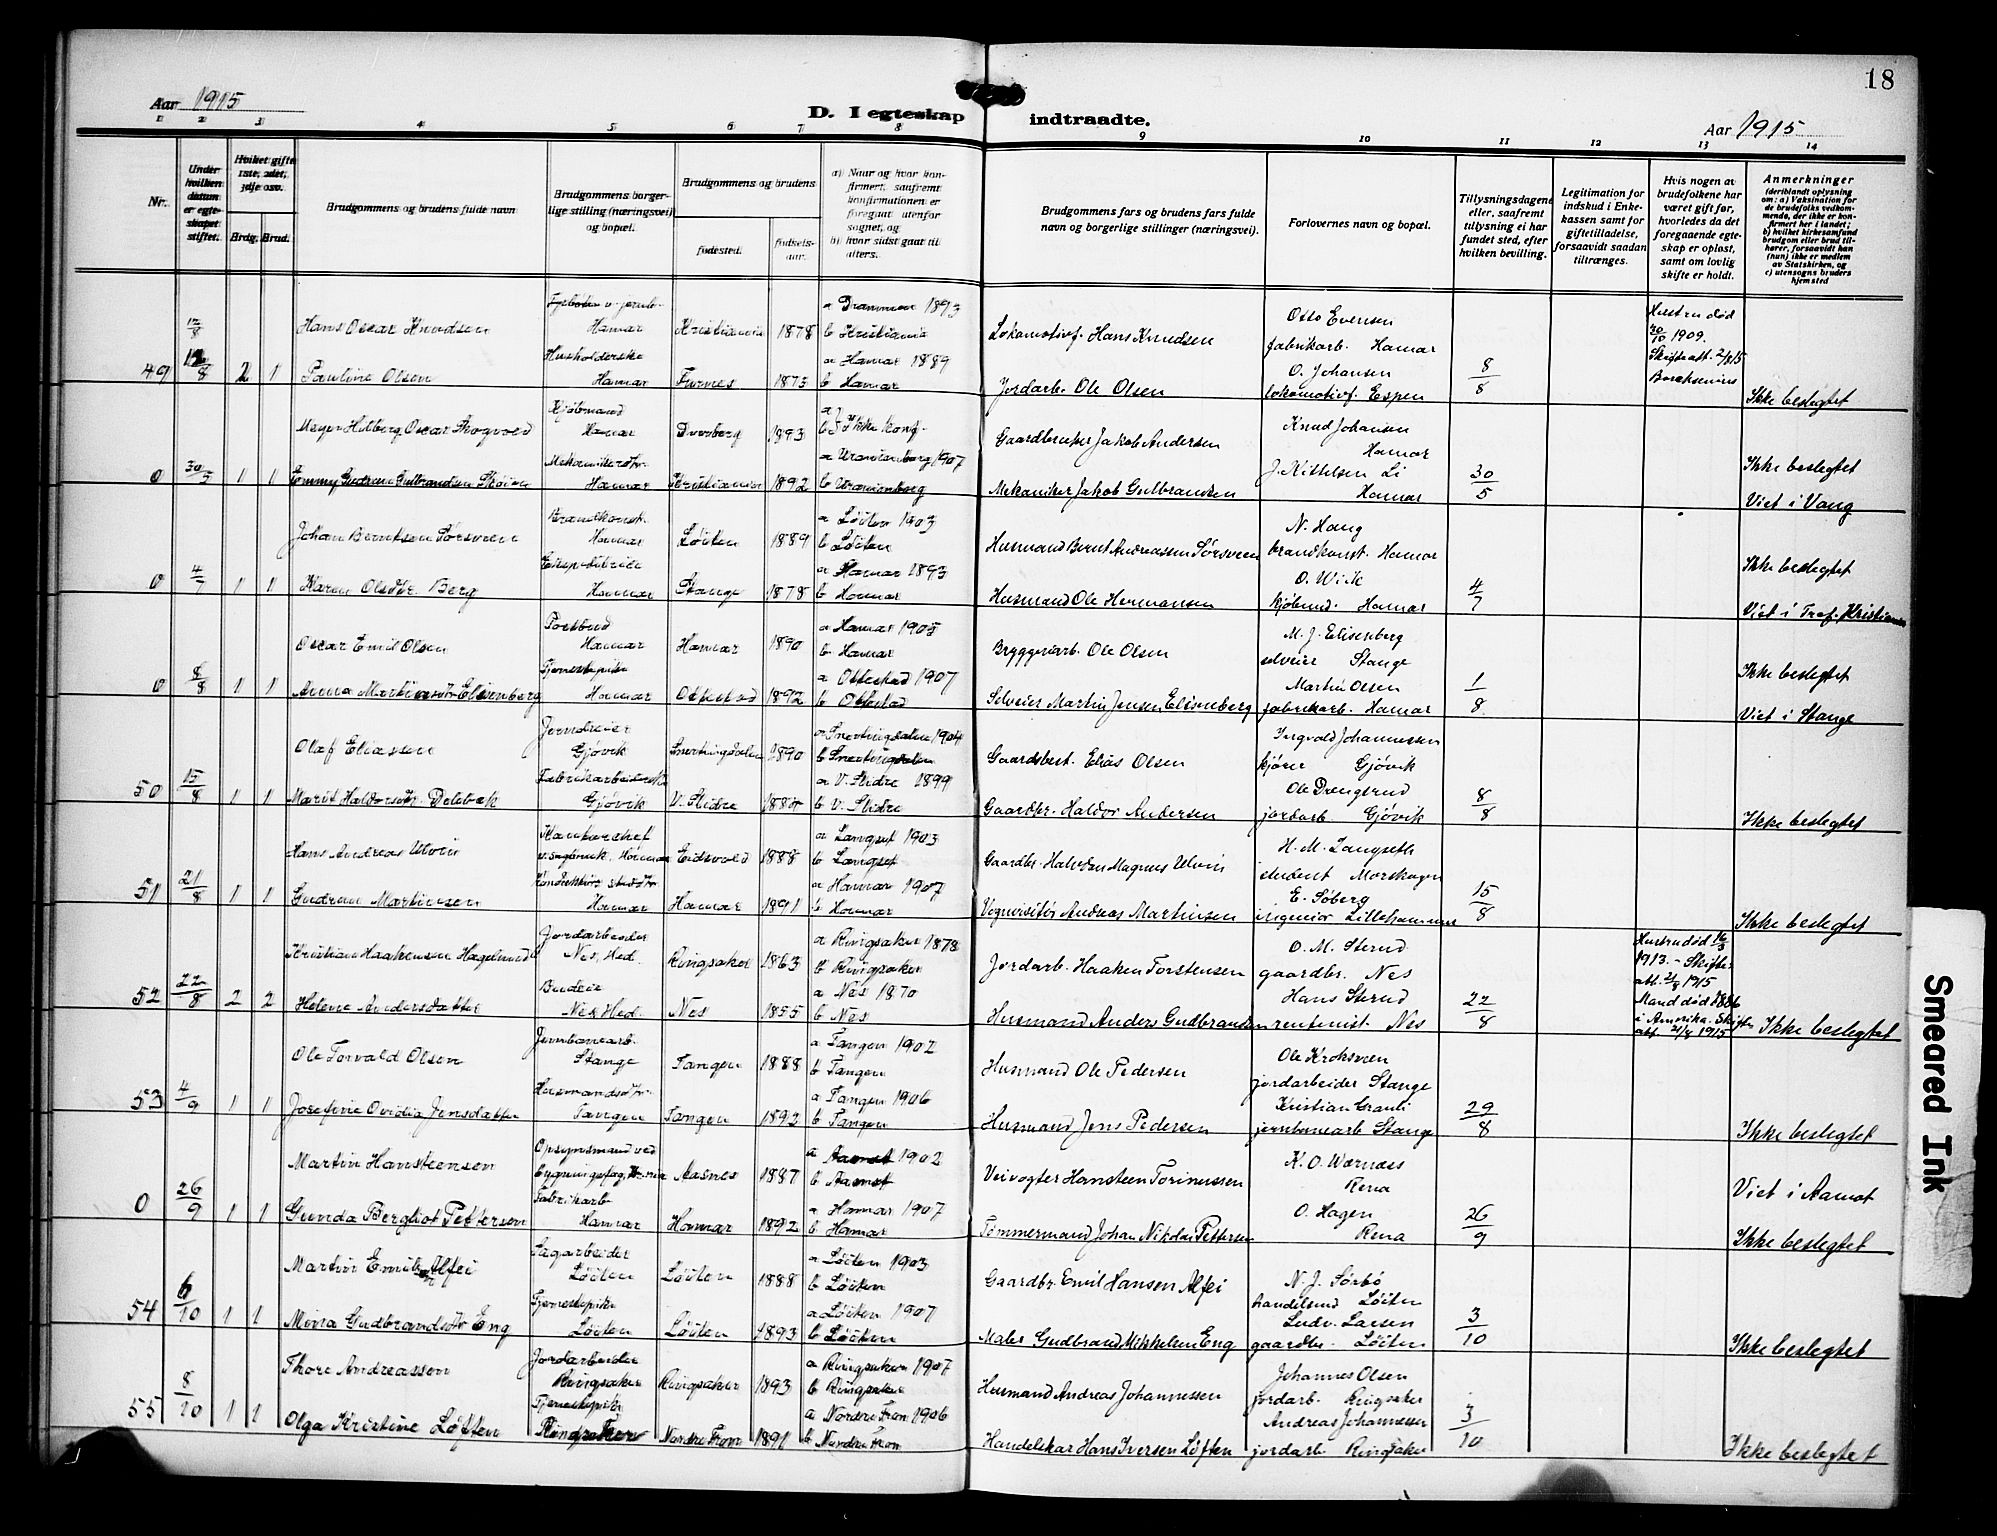 18
Aar 1915
D. I egteskap indtraadte.
Aar 1915
1 2 3 4 5 6 7 8 9 10 11 12 13 14
Nr.
Under hvilken datum er egteskapet stiftet.
Hvilket gifte 1ste, 2det, 3dje osv.
Brdg.
Brud.
Brudgommens og brudens fulde navn
Brudgommens borgerlige stilling (næringsvei) og bopæl.
Brudgommens og brudens
fødested.
fødselsaar.
a) Naar og hvor konfirmert, saafremt konfirmationen er foregaat utenfor sognet, og
b) hvor sidst gaat til alters.
Brudgommens fars og brudens fars fulde navn og borgerlige stillinger (næringsvei).
Forlovernes navn og bopæl.
Tillysningsdagene eller, saafremt tillysning ei har fundet sted, efter hvilken bevilling.
Legitimation for indskud i Enkekassen samt for giftetilladelse, forsaavidt saadan tiltrænges.
Hvis nogen av brudefolkene har været gift før, hvorledes da det foregaaende egteskap er opløst, samt om lovlig skifte er holdt.
Anmerkninger (deriblandt oplysning om: a) Vaksination for de brudefolks vedkommende, der ikke er konfirmert her i landet; b) hvilket kirkesamfund brudgom eller brud tilhører, forsaavidt han (hun) ikke er medlem av Statskirken, og c) utensogns bruders hjemsted
49 12/8 2 1
Hans Oscar Knudsen Hamar Kristiania 1878 a Drammen 1893 b Kristiania
Lokomotivf. Hans Knudsen
Otto Evensen fabrikarb. Hamar
Hustru død 30/10 1909. Skifteatt. 2/8 15
Pauline Olsen Husholderske Hamar Furnes 1875 a Hamar 1889 b Hamar
Jordarb. Ole Olsen
O. Johansen lokomotivf. Espen
8/8
Ikke beslegtet
0 30/5 1 1
Meyer Hilberg Oscar Skogvold Kjøbmand Hamar Dverberg 1893 a b Ikke konf.
Gaardbruker Jakob Andersen
Knud Johansen Hamar
Ikke beslegtet
Gudrun Gulbrandsen Hamar Kristiania 1892 a Uranienborg 1907 b Uranienborg
Mekaniker Jakob Gulbrandsen
J. Kittelsen Li Hamar
30/5
Viet i Vang
0 4/7 1 1
Johan Berntsen Sørsveen Brandkonst. Hamar Løiten 1889 a Løiten 1903 b Løiten
Husmand Bernt Andreassen Sørsveen
N. Haug brandkonst. Hamar
Ikke beslegtet
Karen Olsdtr. Berg Hamar Stange 1878 a Hamar 1893 b Hamar
Husmand Ole Hermansen
O. Wick kjøbmd. Hamar
4/7
Viet i Tref. Kristiania
0 8/8 1 1
Oscar Emil Olsen Postbud Hamar Hamar 1890 a Hamar 1905 b Hamar
Bryggeriarb. Ole Olsen
M. J. Elisenberg selveier Stange
Ikke beslegtet
Anna Martinsdtr Elisenberg Tjenestepike Hamar Ottestad 1892 a Ottestad 1907 b Ottestad
Selveier Martin Jensen Elisenberg
Martin Olsen fabrikarb. Hamar
1/8
Viet i Stange
50 15/8 1 1
Olaf Eliasen Jerndreier Gjøvik Snertingdalen 1890 a Snertingdalen 1904 b Snertingdalen
Gaardbest. Elias Olsen
Ingvald Johannessen kjører Gjøvik
Marit Haldorsdtr. Delebæk Fabrikarbeiderske Gjøvik V. Slidre a V. Slidre 1899 b V. Slidre
Gaardbr. Haldor Andersen
Ole Drengsrud jordarb. Gjøvik
8/8
Ikke beslegtet
51 21/8 1 1
Hans Andreas Ulvin Hamar Eidsvold 1888 a Langset 1903 b Langset
Gaardbr. Halvdan Magnus Ulvin
H. M. Langseth student Morskogen
Gudrun Martinsen Hamar Hamar 1891 a Hamar 1907 b Hamar
Vognvisitør Andreas Martinsen
E. Søberg ingeniør Lillehammer
15/8
Ikke beslegtet
52 22/8 2 2
Kristian Haakensen Hagelund Jordarbeider Nes, Hed. Ringsaker 1863 a Ringsaker 1878 b Ringsaker
Jordarb. Haaken Torstensen
O. M. Sterud gaardbr. Nes
Hustru død 16/3 1913. – Skifteatt. 21/8 1915
Helene Andersdatter Budeie Nes Hed. Nes 1855 a Nes 1870 b Nes
Husmand Anders Gudbrandsen
Hans Sterud rentenist. Nes
22/8
Mand død 1886 i Amerika. Skifteatt. 21/8 1915
Ikke beslegtet
53 4/9 1 1
Ole Torvald Olsen Jernbanearb. Stange Tangen 1888 a Tangen 1902 b Tangen
Husmand Ole Pedersen
Ole Kroksveen jordarbeider Stange
Josefine Ovidia Jensdatter Husmandsdtr. Tangen Tangen 1892 a Tangen 1906 b Tangen
Husmand Jens Pedersen
Kristian Granli jernbanearb Stange
29/8
Ikke beslegtet
0 26/9 1 1
Martin Hansteensen Opsynsmand ved Aasnes 1887 a Aamot 1902 b Aamot
Veivogter Hansteen Torinussen
K. O. Wærness Rena
Viet i Aamot
Gunda Bergliot Pettersen Fabrikarb. Hamar Hamar 1892 a Hamar 1907 b Hamar
Tømmermand Johan Nikolai Pettersen
O. Hagen Rena
26/9
Ikke beslegtet
54 6/10 1 1
Martin Emilsen Alfei Sagarbeider Løiten Løiten 1888 a Løiten 1903 b Løiten
Gaardbr. Emil Hansen Alfei
N. J. Sørbø handelsmd Løiten
Mina Gudbrandsdtr Eng Tjenestepike Løiten Løiten 1893 a Løiten 1907 b Løiten
Maler Gudbrand Mikkelsen Eng
Ludv. Larsen gaardbr. Løiten
3/10
Ikke beslegtet
55 8/10 1 1
Thore Andreassen Jordarbeider Ringsaker Ringsaker 1893 a Ringsaker 1907 b Ringsaker
Husmand Andreas Johannessen
Johannes Olsen jordarb. Ringsaker
Olga Kristine Løften Tjenestepike Nordre Fron 1891 a Nordre Fron 1906 b Nordre Fron
Handelskar Hans Iversen Løften
Andreas Johannessen jordarb. Ringsaker
3/10
Ikke beslegtet
Smeared Ink